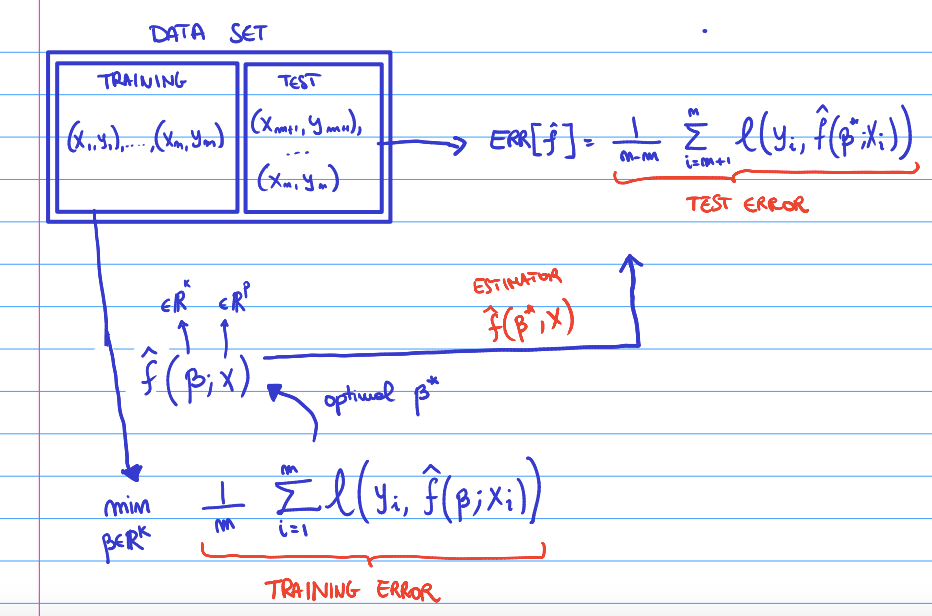 DATA SET
TRAINING
(x₁,y₁),...,(xₘ,yₘ)
TEST
(xₘ₊₁,yₘ₊₁),
...
(xₙ,yₙ)
ERR[f̂] = 1/(n-m) Σᵢ₌ₘ₊₁ⁿ ℓ(yᵢ, f̂(β*;xᵢ))
TEST ERROR
ESTIMATOR
f̂(β*;x)
∈ℝᴷ ∈ℝᵖ
f̂(β;x)
optimal β*
min 1/m Σᵢ₌₁ᵐ ℓ(yᵢ, f̂(β;xᵢ))
β∈ℝᴷ
TRAINING ERROR